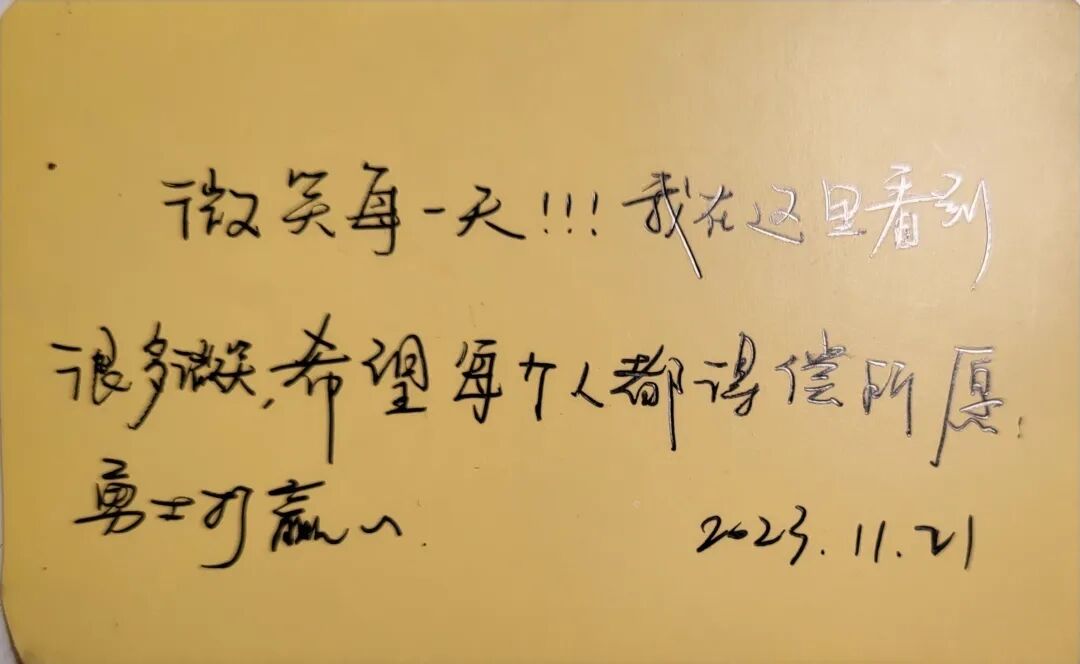 微笑每一天!!!我在这里看到
很多微笑,希望每个人都得偿所愿.
勇士打赢
2023.11.21